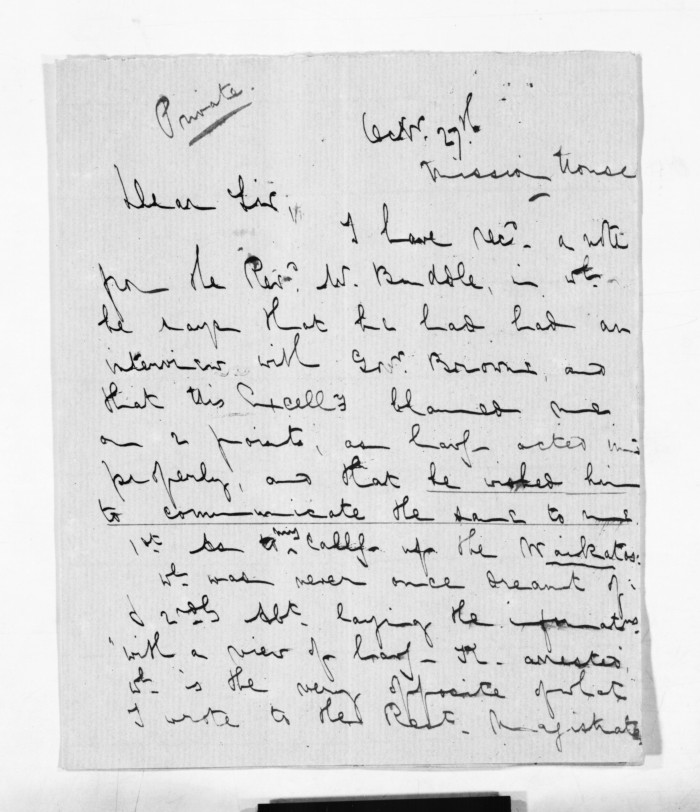 Private.
Octbr. 27th
Mission House
Dear Sir,
I have recd. a note
from the Revd. W. Buddle, in wh.
he says that he had had an
interview with Govr. Browne, and
that this Excelly blamed me
on 2 points, as havg. acted im
properly, and that he wished him
to communicate the same to me.
1st. As to my callg. up the Waikatos:
wh. was never once dreamt of;
& 2ndly Abt. laying the information
with a view of havg. K. arrested,
wh. is the very opposite of what
I wrote to the Rest. Magistrate